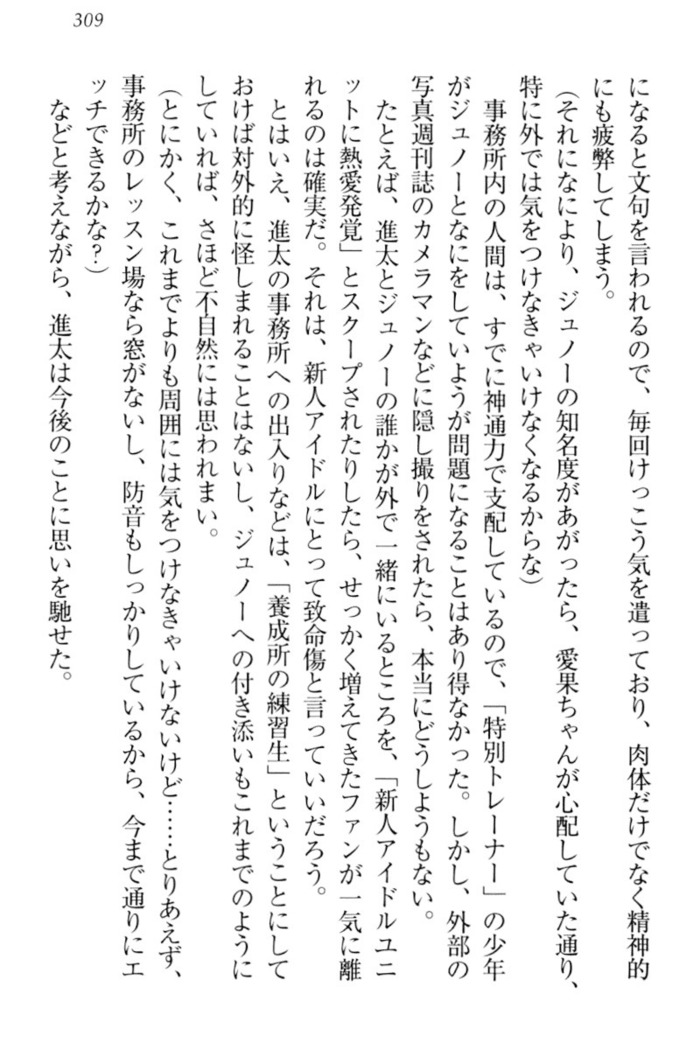 309
になると文句を言われるので、毎回けっこう気を遣っており、肉体だけでなく精神的
にも疲弊してしまう。
(それになにより、ジュノーの知名度があがったら、愛果ちゃんが心配していた通り、
特に外では気をつけなきゃいけなくなるからな)
事務所内の人間は、すでに神通力で支配しているので、「特別トレーナー」の少年
がジュノーとなにをしていようが問題になることはあり得なかった。しかし、外部の
写真週刊誌のカメラマンなどに隠し撮りをされたら、本当にどうしようもない。
たとえば、進太とジュノーの誰かが外で一緒にいるところを、「新人アイドルユニ
ットに熱愛発覚」とスクープされたりしたら、せっかく増えてきたファンが一気に離
れるのは確実だ。それは、新人アイドルにとって致命傷と言っていいだろう。
とはいえ、進太の事務所への出入りなどは、「養成所の練習生」ということにして
おけば対外的に怪しまれることはないし、ジュノーへの付き添いもこれまでのように
していれば、さほど不自然には思われまい。
(とにかく、これまでよりも周囲には気をつけなきゃいけないけど……とりあえず、
事務所のレッスン場なら窓がないし、防音もしっかりしているから、今まで通りにエ
ッチできるかな?)
などと考えながら、進太は今後のことに思いを馳せた。